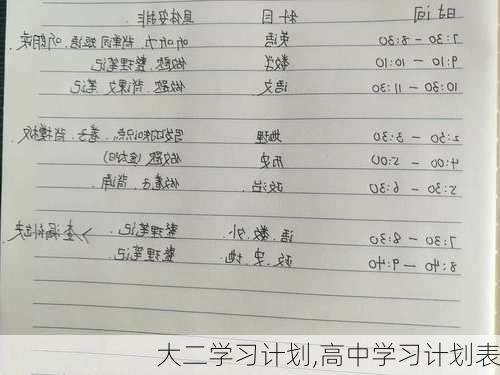 时间 科目 具体安排
7:30 — 8:30 英语 听听力.背单词.短语.听朗读.
9:10 — 10:10 数学 做题.整理笔记
10:30 — 11:30 语文 做题.背课文.笔记
2:30 — 3:30 地理 知识点.看书.背模板.
4:00 — 5:00 历史 做题
5:30 — 6:30 政治 做卷子.背诵.
7:30 — 8:30 语.数.外 整理笔记. >查漏补缺
8:40 — 9:40 政.史.地. 整理笔记.
大二学习计划,高中学习计划表